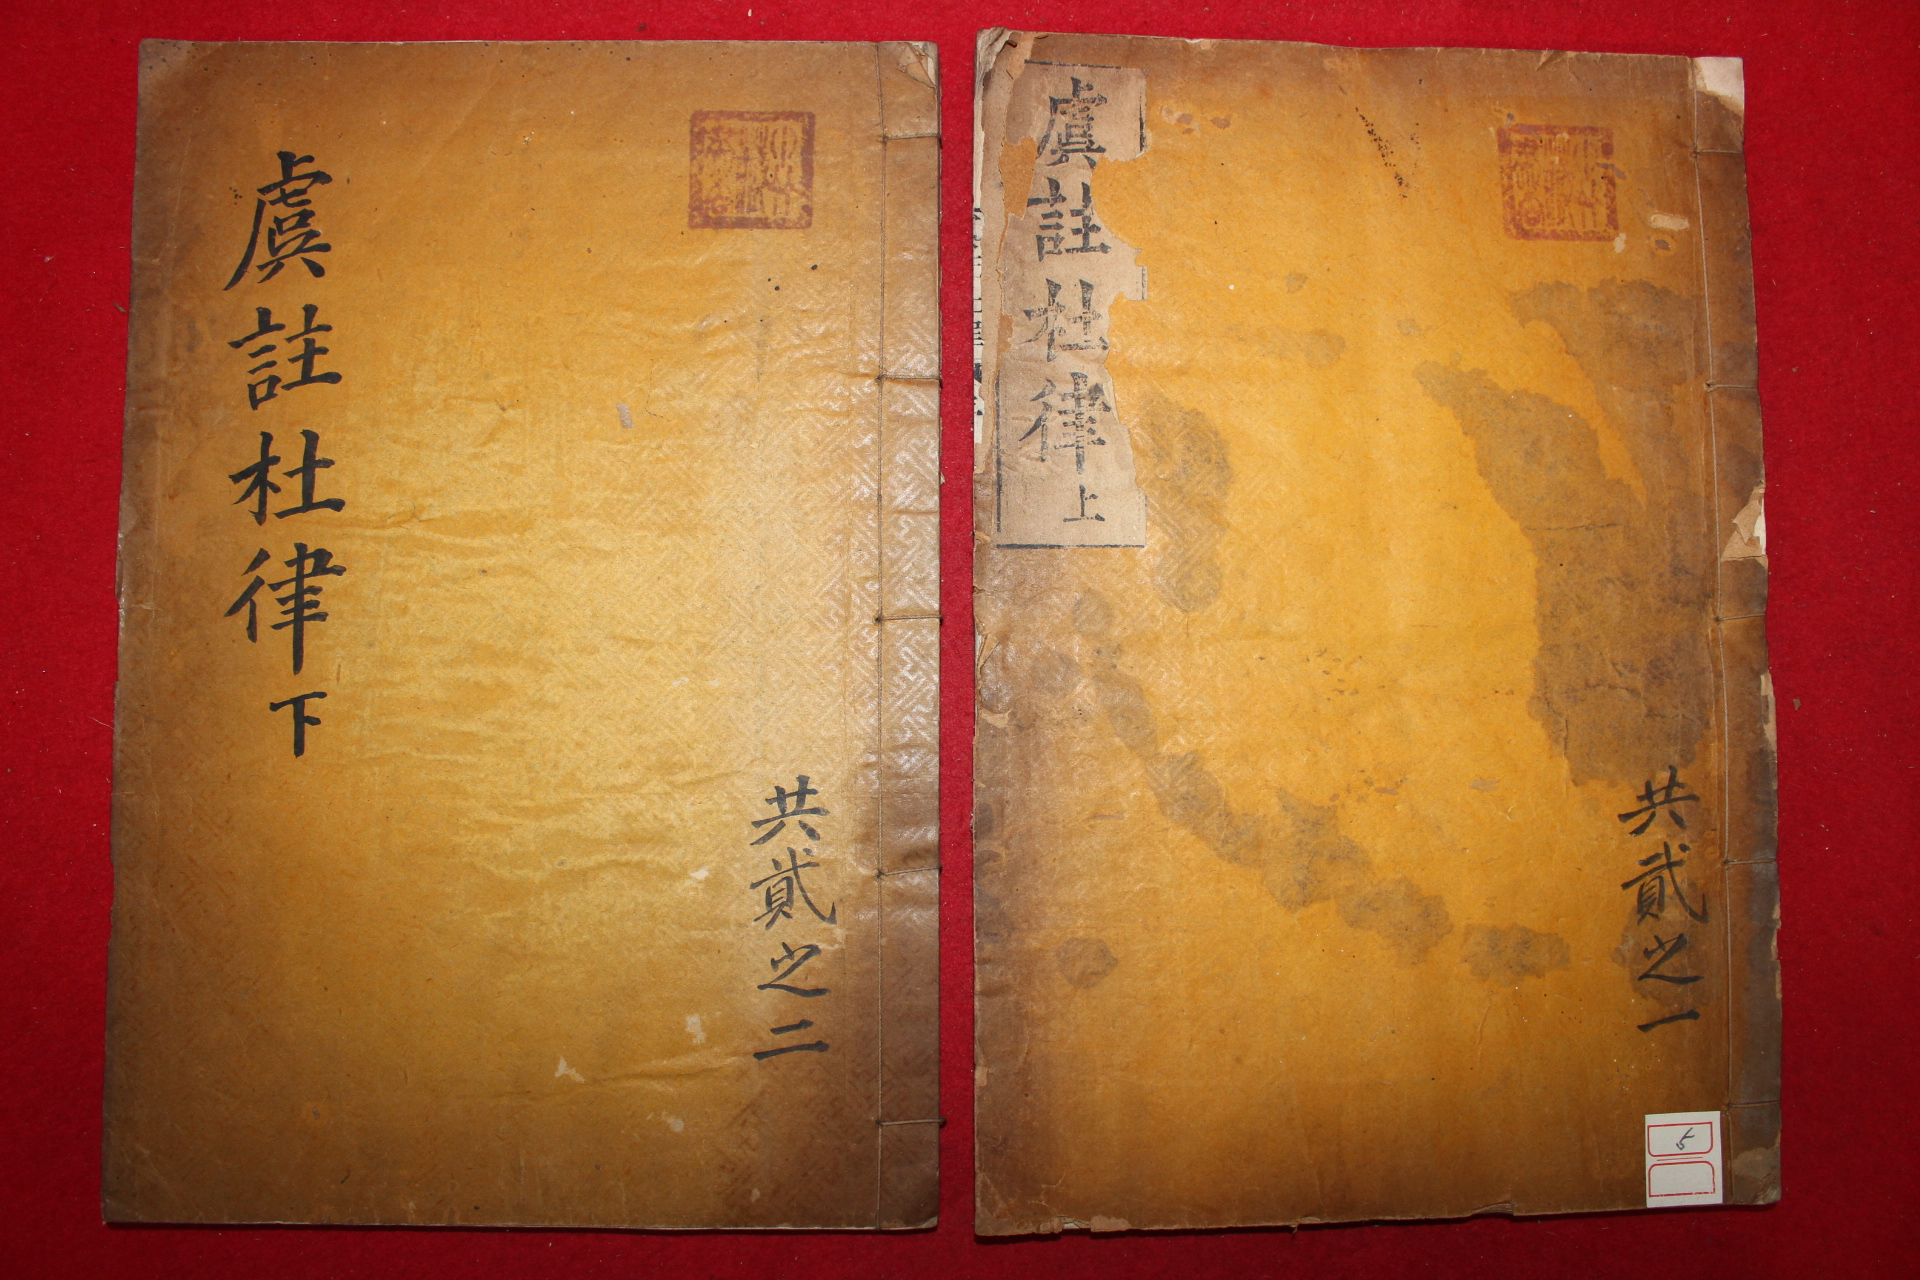 虞註杜律上
共貳之一
5
虞註杜律下
共貳之二